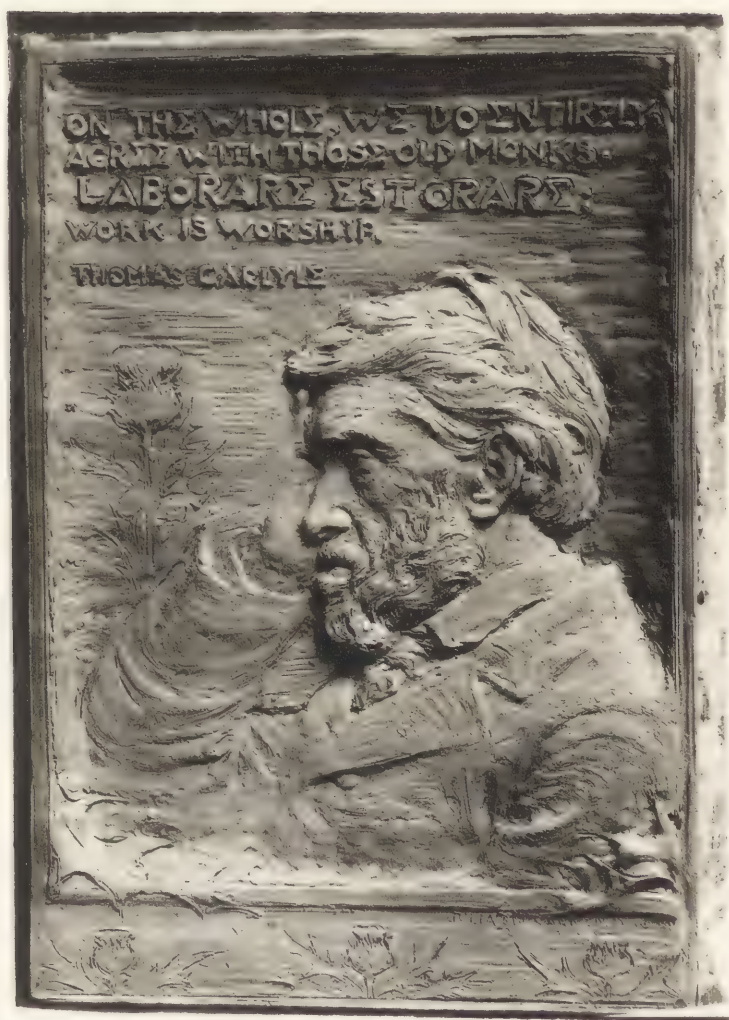 ON THE WHOLE, WE DO ENTIRELY
AGREE WITH THOSE OLD MONKS·
LABORARE EST ORARE:
WORK IS WORSHIP.
THOMAS CARLYLE